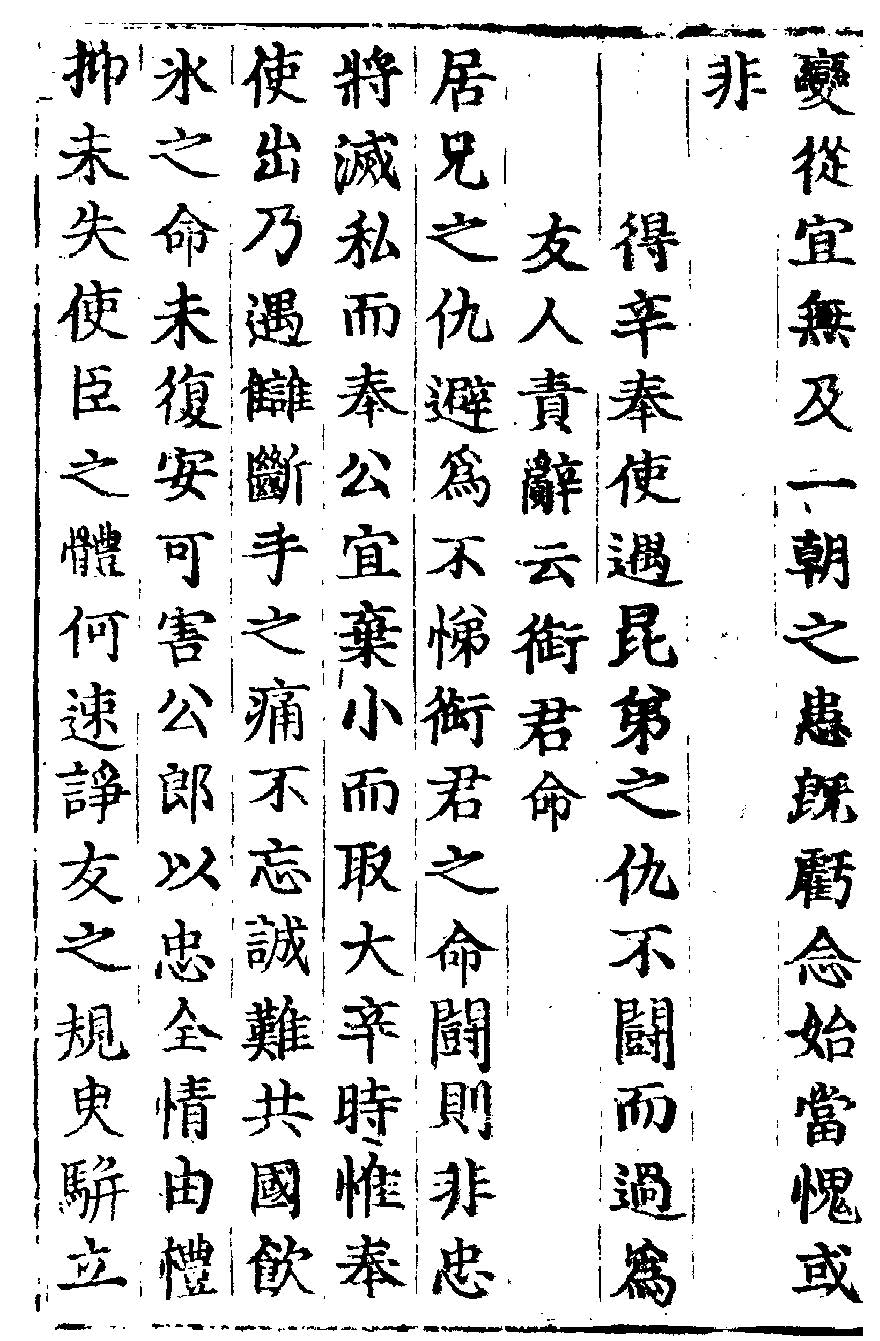 變從宜無及一朝之患既虧念始當愧或
非
得辛奉使遇昆弟之仇不鬪而過爲
友人責辭云銜君命
居兄之仇避爲不悌銜君之命鬪則非忠
將滅私而奉公宜棄小而取大辛時惟奉
使出乃遇讎斷手之痛不忘誠難共國飲
氷之命未復安可害公郎以忠全情由禮
抑未失使臣之體何速諍友之規史騈立